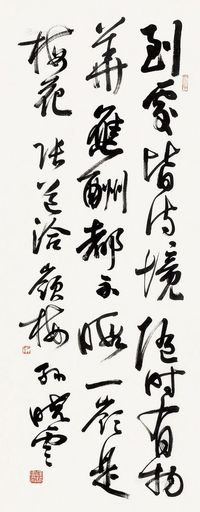 到處皆詩境隨時有物
華應酬都不暇一嶺是
梅花 張道洽嶺梅 孫曉雲